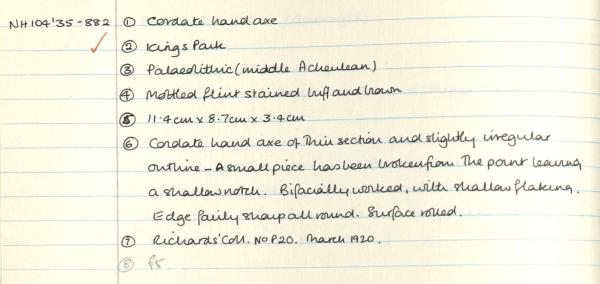 NH104'35-882 ① Cordate hand axe
② Kings Park
③ Palaeolithic (middle Acheulean)
④ Mottled flint stained buff and brown
⑤ 11.4cm x 8.7cm x 3.4cm
⑥ Cordate hand axe of thin section and slightly irregular
outline – A small piece has been broken from the point leaving
a shallow notch. Bifacially worked, with shallow flaking.
Edge fairly sharp all round. Surface rolled.
⑦ Richards' Coll. No P20. March 1920.
⑧ f5